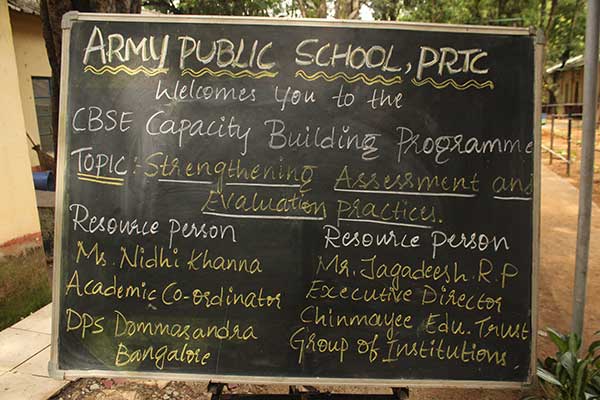 ARMY PUBLIC SCHOOL, PRTC
Welcomes You to the
CBSE Capacity Building Programme
TOPIC: Strengthening Assessment and
Evaluation practices.
Resource person
Ms. Nidhi Khanna
Academic Co-ordinator
DPS Dommasandra
Bangalore
Resource person
Mr. Jagadeesh R.P
Executive Director
Chinmayee Edu. Trust
Group of Institutions